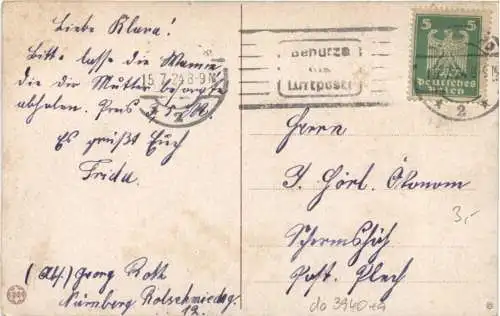 Liebe Klara!
Bitte lasse die Wanne
die die Mutter besorgte
abholen. Preis 3.50 M.
Es grüßt Euch
Frida.
(Abs.) Georg Roth
Nürnberg Rotschmiedsg.
12.
15.7.24.8-9N
Benutze
die
Luftpost!
5 5
Deutsches
Reich
* 2 *
Herrn
J. Hörl. Ökonom
Schermshöh
Post. Plech
3,-
do 3940 ea